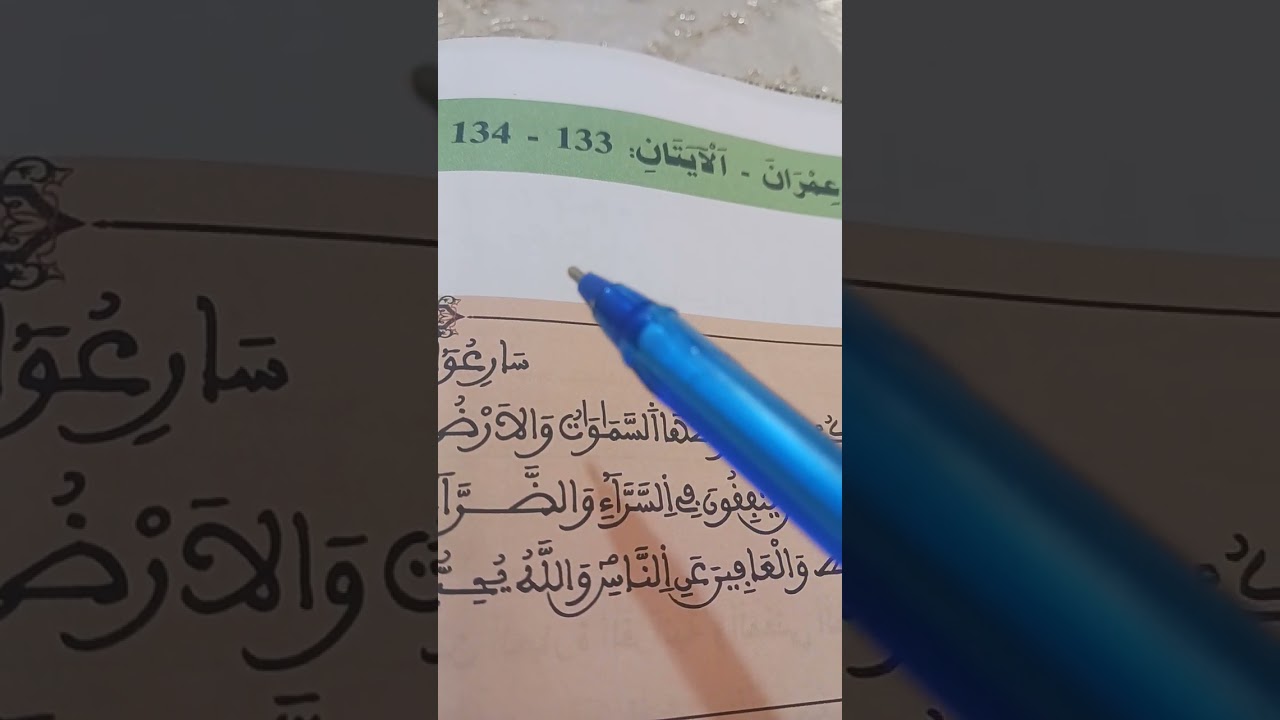 عِمْرَانَ - اَلْآيَتَانِ: 133 - 134
سَارِعُوٓا
اُ۬لسَّمَٰوَٰتُ وَالَارْضُ
يُنفِقُونَ فِے اِ۬لسَّرَّآءِ وَالضَّرَّآ
وَالْعَافِينَ عَنِ اِ۬لنَّاسِ وَاللَّهُ يُحِبُّ